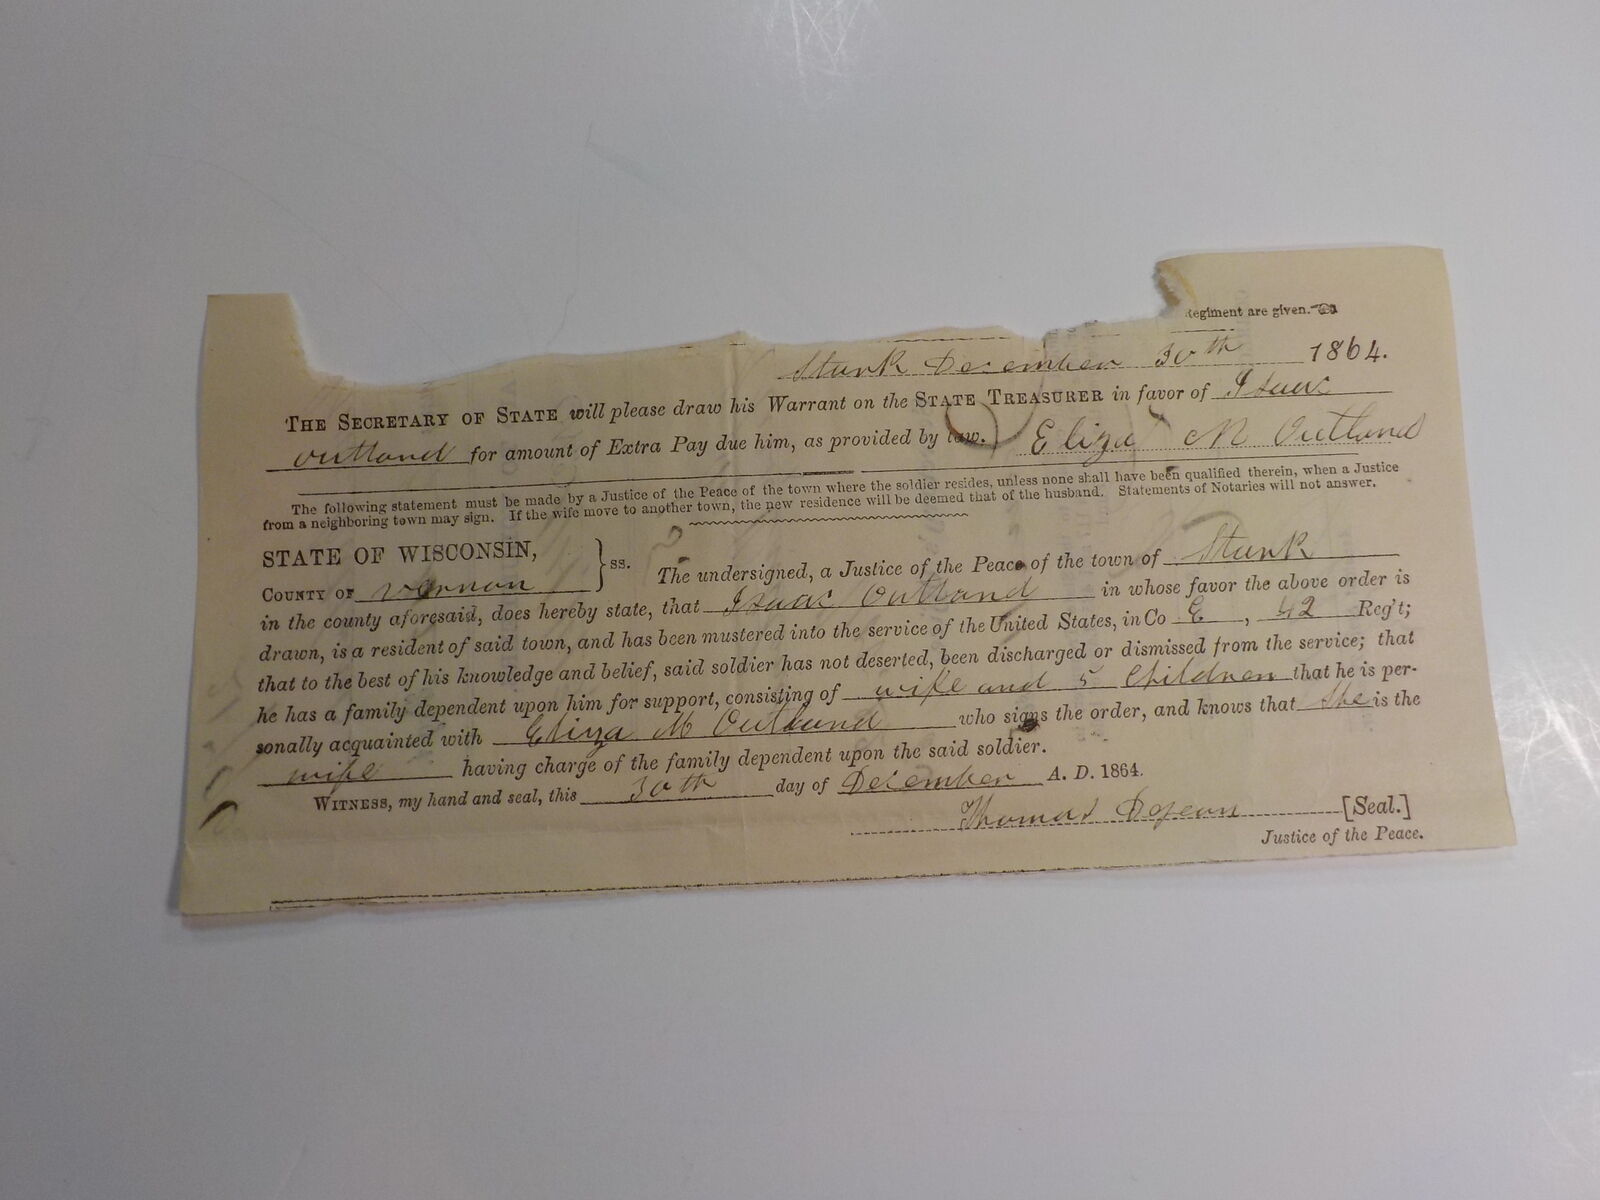 Regiment are given.
Stark December 30th 1864.
THE SECRETARY OF STATE will please draw his Warrant on the STATE TREASURER in favor of Isaac
outland for amount of Extra Pay due him, as provided by law. Eliza M Outland
The following statement must be made by a Justice of the Peace of the town where the soldier resides, unless none shall have been qualified therein, when a Justice
from a neighboring town may sign. If the wife move to another town, the new residence will be deemed that of the husband. Statements of Notaries will not answer.
STATE OF WISCONSIN,
COUNTY OF vernon } ss. The undersigned, a Justice of the Peace of the town of Stark
in the county aforesaid, does hereby state, that Isaac Outland in whose favor the above order is
drawn, is a resident of said town, and has been mustered into the service of the United States, in Co E, 42 Reg't;
that to the best of his knowledge and belief, said soldier has not deserted, been discharged or dismissed from the service; that
he has a family dependent upon him for support, consisting of wife and 5 Children that he is per-
sonally acquainted with Eliza M Outland who signs the order, and knows that She is the
wife having charge of the family dependent upon the said soldier.
WITNESS, my hand and seal, this 30th day of December A. D. 1864.
Thomas [Seal.]
Justice of the Peace.